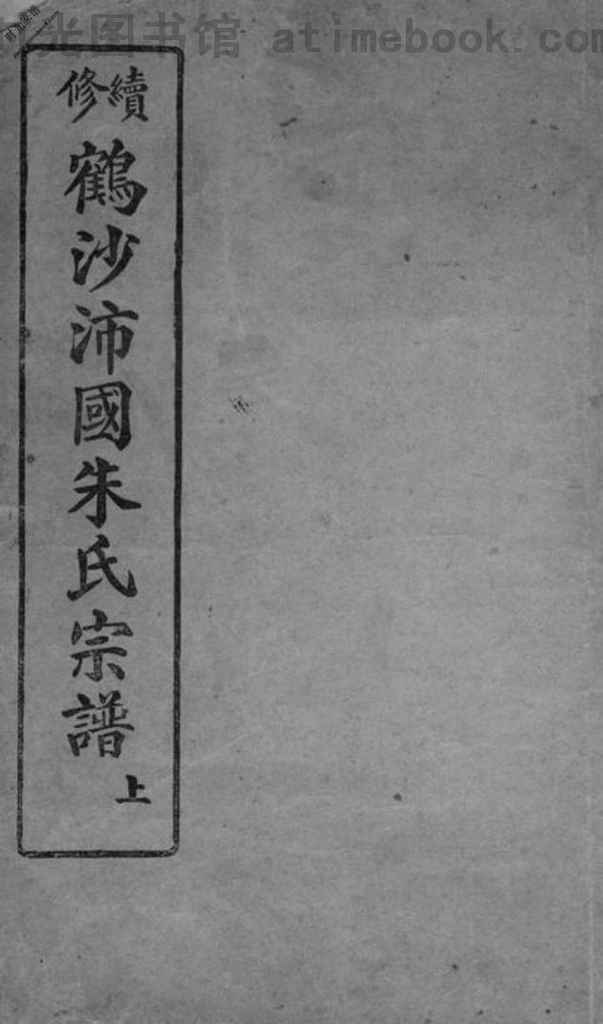 光图书馆 atimebook.com
續修
鶴沙沛國朱氏宗譜
上